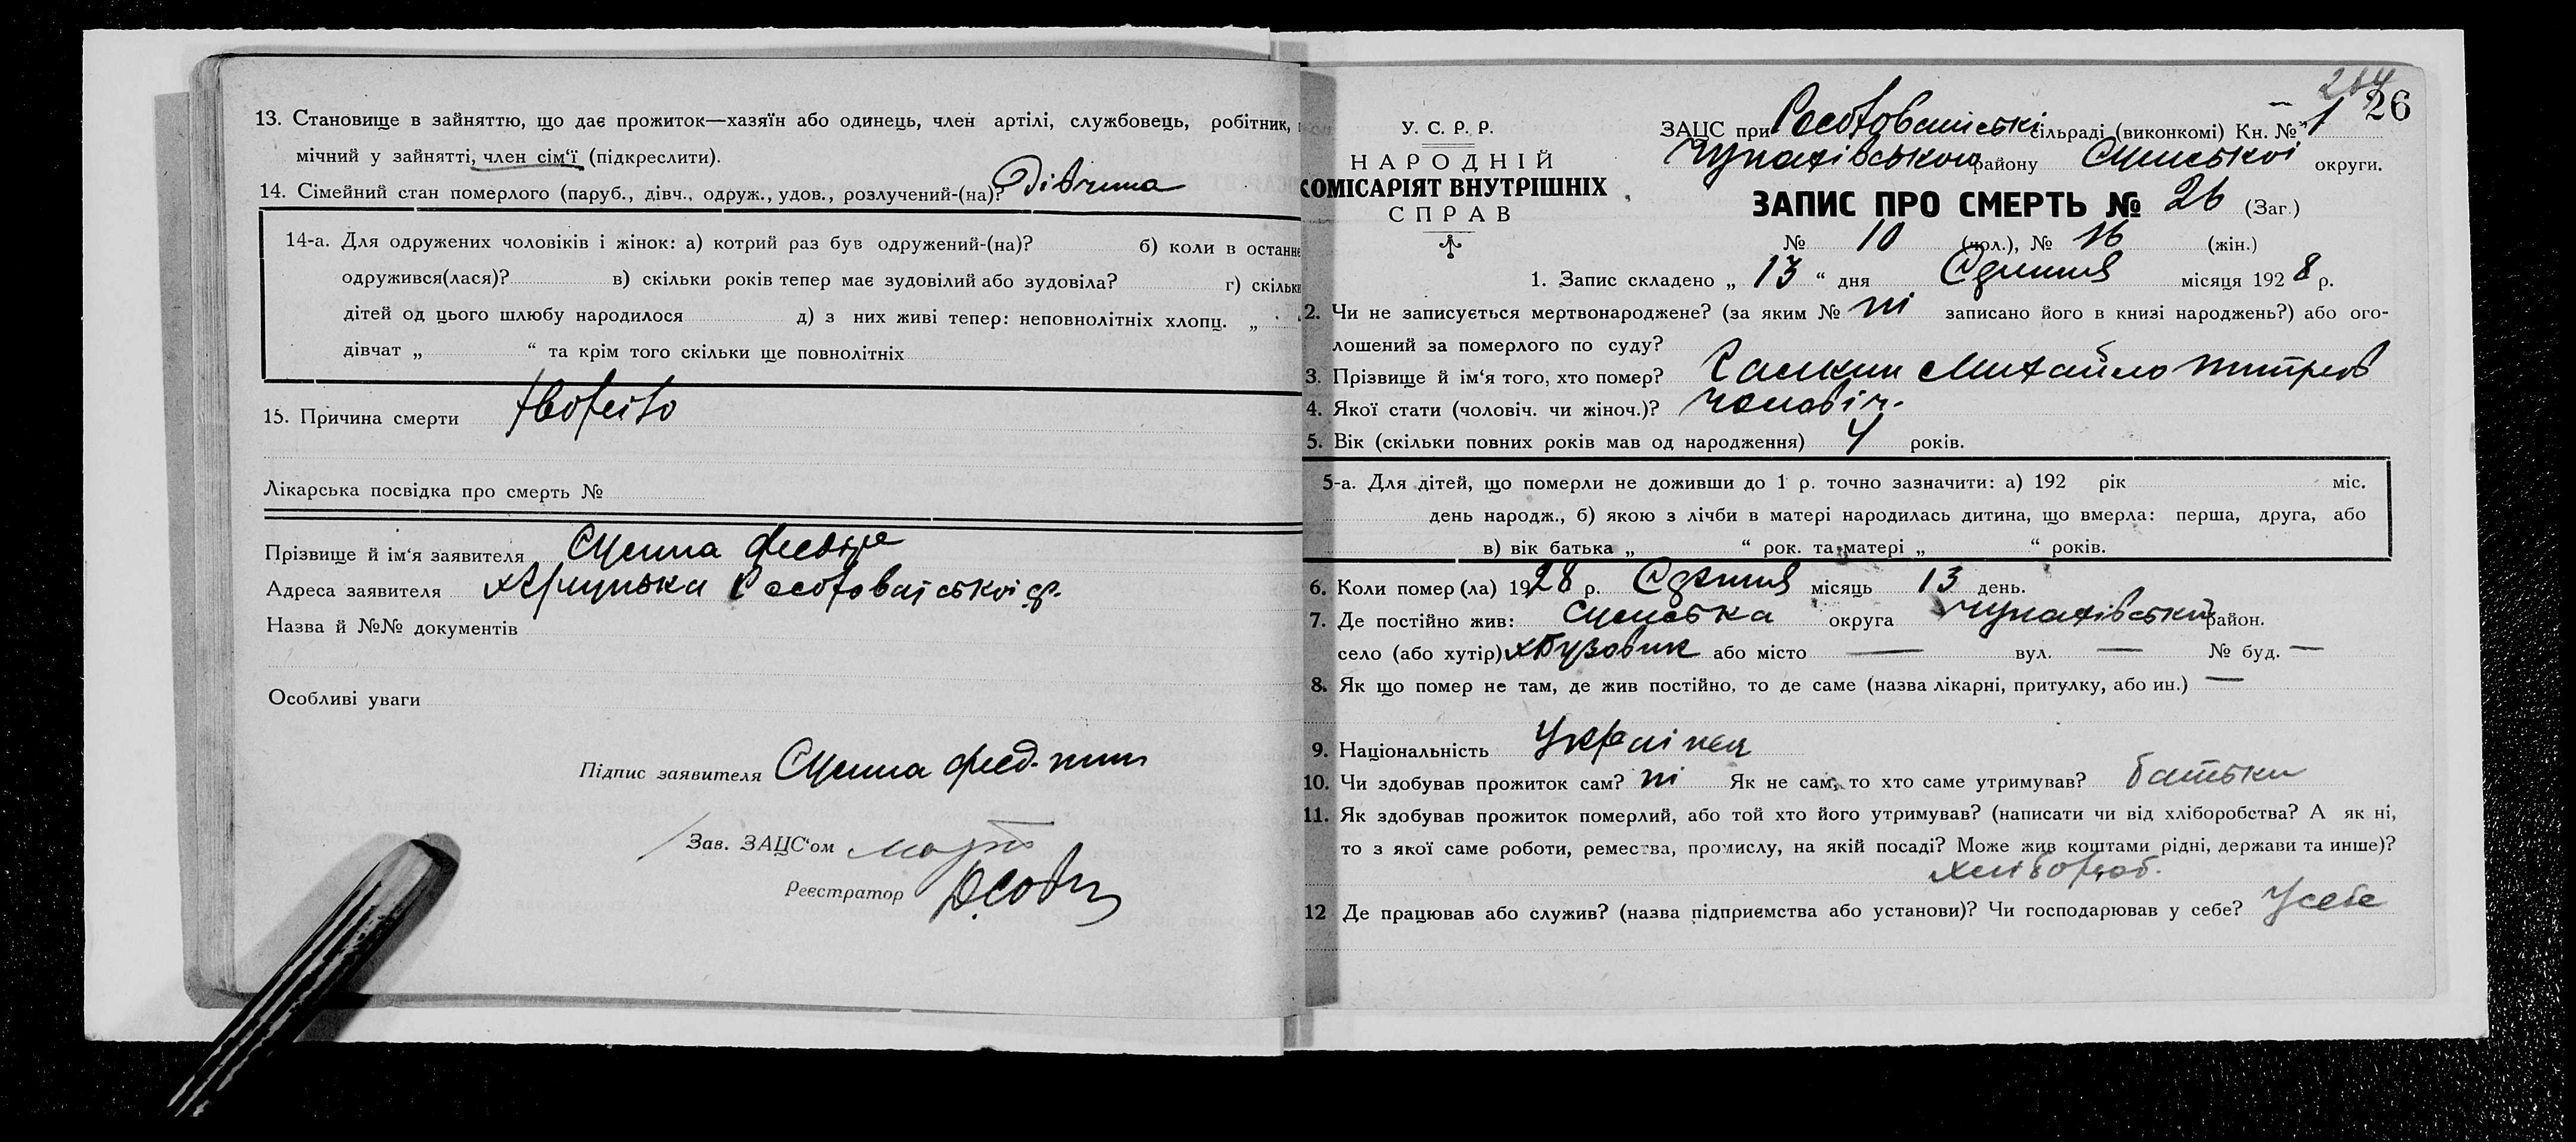 13. Становище в зайняттю, що дає прожиток—хазяїн або одинець, член артілі, службовець, робітник,
мічний у зайнятті, член сім'ї (підкреслити).
14. Сімейний стан померлого (паруб., дівч., одруж., удов., розлучений-(на)? Дівчина
14-а. Для одружених чоловіків і жінок: а) котрий раз був одружений-(на)? б) коли в останнє
одружився(лася)? в) скільки років тепер має зудовілий або зудовіла? г) скільки
дітей од цього шлюбу народилося д) з них живі тепер: неповнолітніх хлопц. „
дівчат „ “ та крім того скільки ще повнолітніх
15. Причина смерти
Лікарська посвідка про смерть №
Прізвище й ім'я заявителя
Адреса заявителя
Назва й №№ документів
Особливі уваги
Підпис заявителя
Зав. ЗАЦС'ом
Реєстратор
26
У. С. Р. Р.
НАРОДНІЙ
КОМІСАРІЯТ ВНУТРІШНІХ
СПРАВ
ЗАЦС при сільраді (виконкомі) Кн. № 1
Чупахівського району Сумської округи.
ЗАПИС ПРО СМЕРТЬ № 26 (Заг.)
№ 10 (чол.), № 16 (жін.)
1. Запис складено „ 13 “ дня Січння місяця 1928 р.
2. Чи не записується мертвонароджене? (за яким № ні записано його в книзі народжень?) або ого-
лошений за померлого по суду?
3. Прізвище й ім'я того, хто помер? Михайло
4. Якої стати (чоловіч. чи жіноч.)? Чоловіч.
5. Вік (скільки повних років мав од народження) 4 років.
5-а. Для дітей, що померли не доживши до 1 р. точно зазначити: а) 192 рік міс.
день народж., б) якою з лічби в матері народилась дитина, що вмерла: перша, друга, або
в) вік батька „ “ рок. та матері „ “ років.
6. Коли помер (ла) 1928 р. місяць 13 день.
7. Де постійно жив: Сумська округа Чупахівський район.
село (або хутір) х Бузовик або місто — вул. — № буд. —
8. Як що помер не там, де жив постійно, то де саме (назва лікарні, притулку, або ин.) —
9. Національність Українец
10. Чи здобував прожиток сам? ні Як не сам, то хто саме утримував? батьки
11. Як здобував прожиток померлий, або той хто його утримував? (написати чи від хліборобства? А як ні,
то з якої саме роботи, ремества, промислу, на якій посаді? Може жив коштами рідні, держави та инше)?
хлібороб.
12 Де працював або служив? (назва підприємства або установи)? Чи господарював у себе? У себе